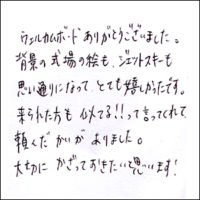 ウェルカムボードありがとうございました。
背景の式場の絵も、ジェットスキーも
思い通りになって、とても嬉しかったです。
来られた方も 似てる!!って言ってくれて、
頼んだ かいが ありました。
大切に かざっておきたいと思います!